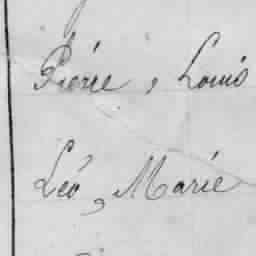 Piérre, Louis
Léo, Marie